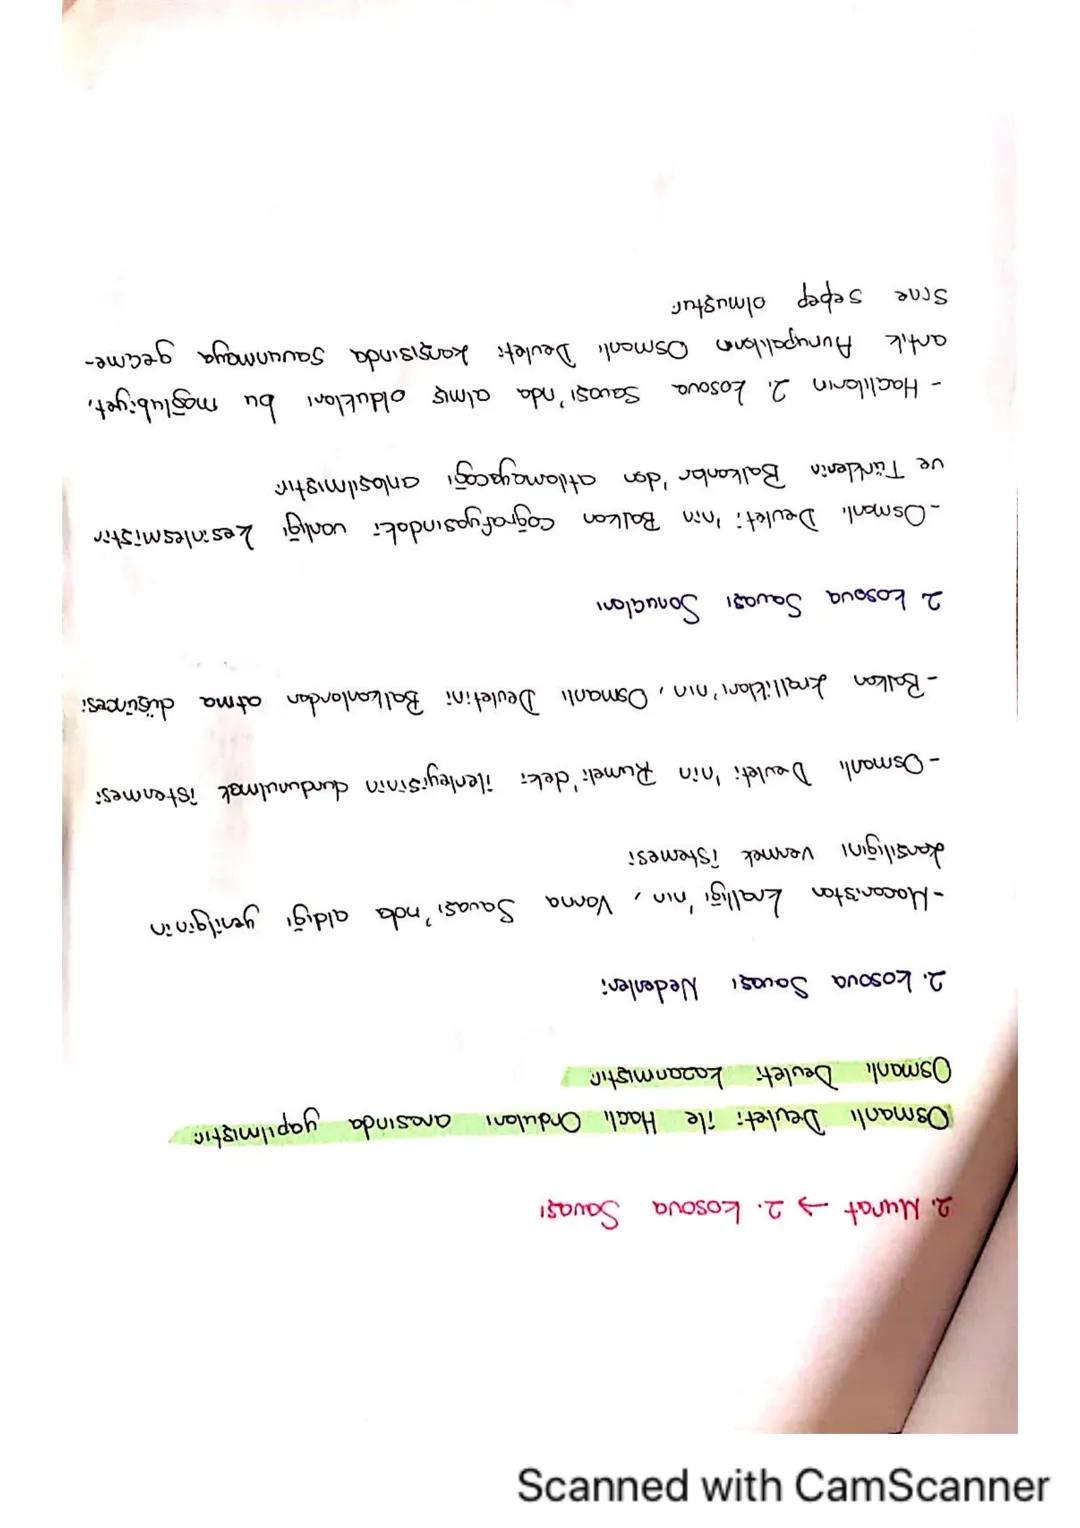 2. Murat → 2. Kosova Savaşı
Osmanlı Devleti ile Haçlı Orduları arasında yapılmıştır
Osmanlı Devleti kazanmıştır
2. Kosova Savaşı Nedenleri
- Macaristan krallığı'nın, Varna Savaşı'nda aldığı yenilginin
karşılığını vermek istemesi
- Osmanlı Devleti'nin Rumeli'deki ilerleyişinin durdurulmak istenmesi
- Balkan krallıkları'nın, Osmanlı Devletini Balkanlardan atma düşüncesi
2 Kosova Savaşı Sonuçları
- Osmanlı Devleti'nin Balkan Coğrafyasındaki varlığı kesinleşmiştir
ve Türklerin Balkanlar'dan atılamayacağı anlaşılmıştır
- Haçlıların 2. Kosova Savaşı'nda almış oldukları bu mağlubiyet,
artık Avrupalıların Osmanlı Devleti karşısında Savunmaya geçme-
sine sebep olmuştur
Scanned with CamScanner